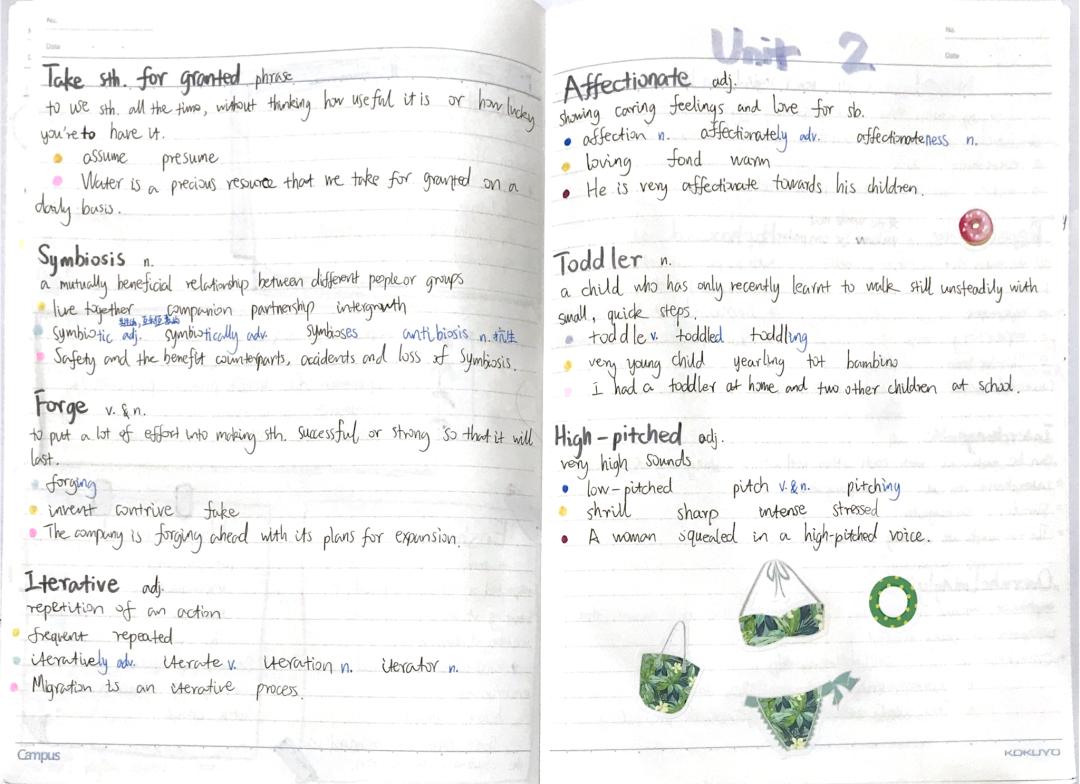 No.
Date
Take sth. for granted phrase
to use sth. all the time, without thinking how useful it is or how lucky
you're to have it.
assume presume
Water is a precious resource that we take for granted on a
daily basis.
Symbiosis n.
a mutually beneficial relationship between different people or groups
live together companion partnership intergrowth
symbiotic adj. symbiotically adv. symbioses antibiosis n. 抗生
Safety and the benefit counterparts, accidents and loss of Symbiosis.
Forge v. & n.
to put a lot of effort into making sth. successful or strong so that it will
last.
forging
invent contrive fake
The company is forging ahead with its plans for expansion.
Iterative adj.
repetition of an action
frequent repeated
iteratively adv. iterate v. iteration n. iterator n.
Migration is an iterative process.
Campus
No.
Date
Unit 2
Affectionate adj.
showing caring feelings and love for sb.
affection n. affectionately adv. affectionateness n.
loving fond warm
He is very affectionate towards his children.
Toddler n.
a child who has only recently learnt to walk still unsteadily with
small, quick steps.
toddle v. toddled toddling
very young child yearling tot bambino
I had a toddler at home and two other children at school.
High-pitched adj.
very high sounds
low-pitched pitch v. & n. pitching
shrill sharp intense stressed
A woman squealed in a high-pitched voice.
KOKUYO